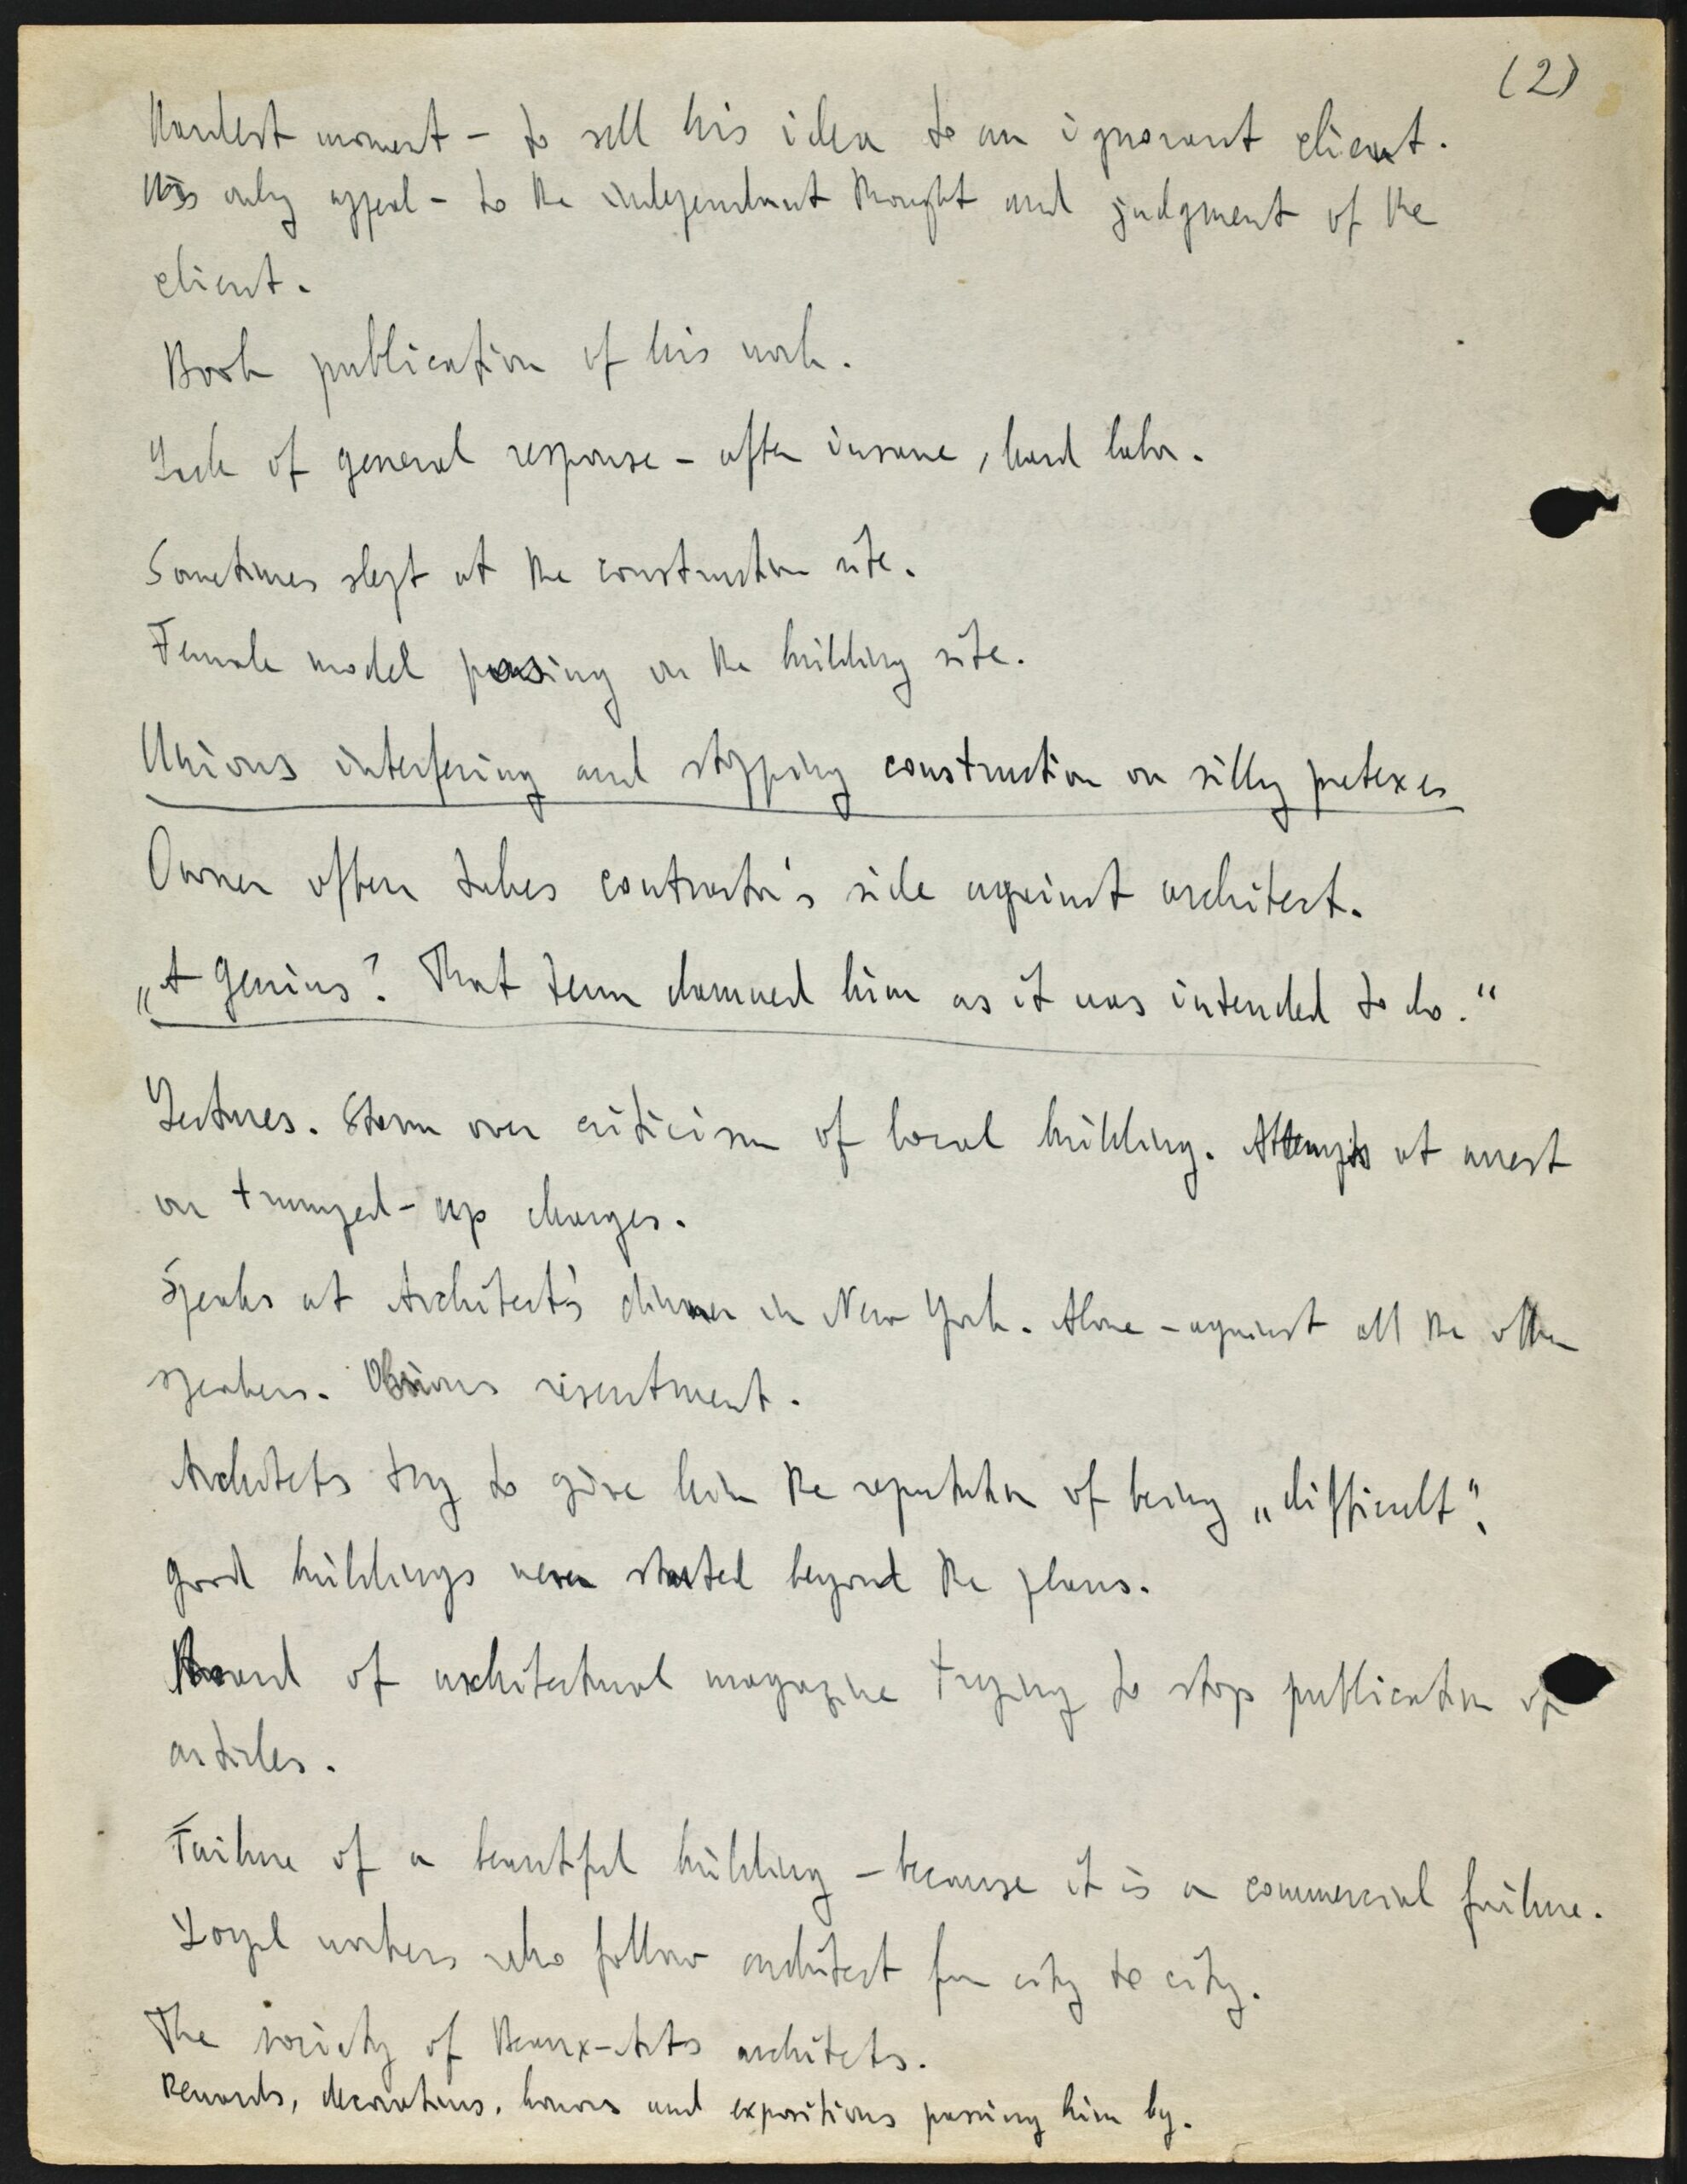 (2)
Hardest moment – to sell his idea to an ignorant client.
His only appeal – to the independant thought and judgment of the
client.
Book publication of his work.
Lack of general response – after insane, hard labor.
Sometimes slept at the construction site.
Female model posing on the building site.
Unions interfering and stopping construction on silly pretexes
Owner often takes contractor's side against architect.
„A genius? That term damned him as it was intended to do."
Lectures. Storm over criticism of local building. Attempts at arrest
on trumped-up charges.
Speaks at Architect's dinner in New York. Alone – against all the other
speakers. Obvious resentment.
Architects try to give him the reputation of being „difficult".
Good buildings never started beyond the plans.
Board of architectural magazine trying to stop publication of
articles.
Failure of a beautiful building – because it is a commercial failure.
Loyal workers who follow architect from city to city.
The society of Beaux-Arts architects.
Rewards, decorations, honors and expositions passing him by.